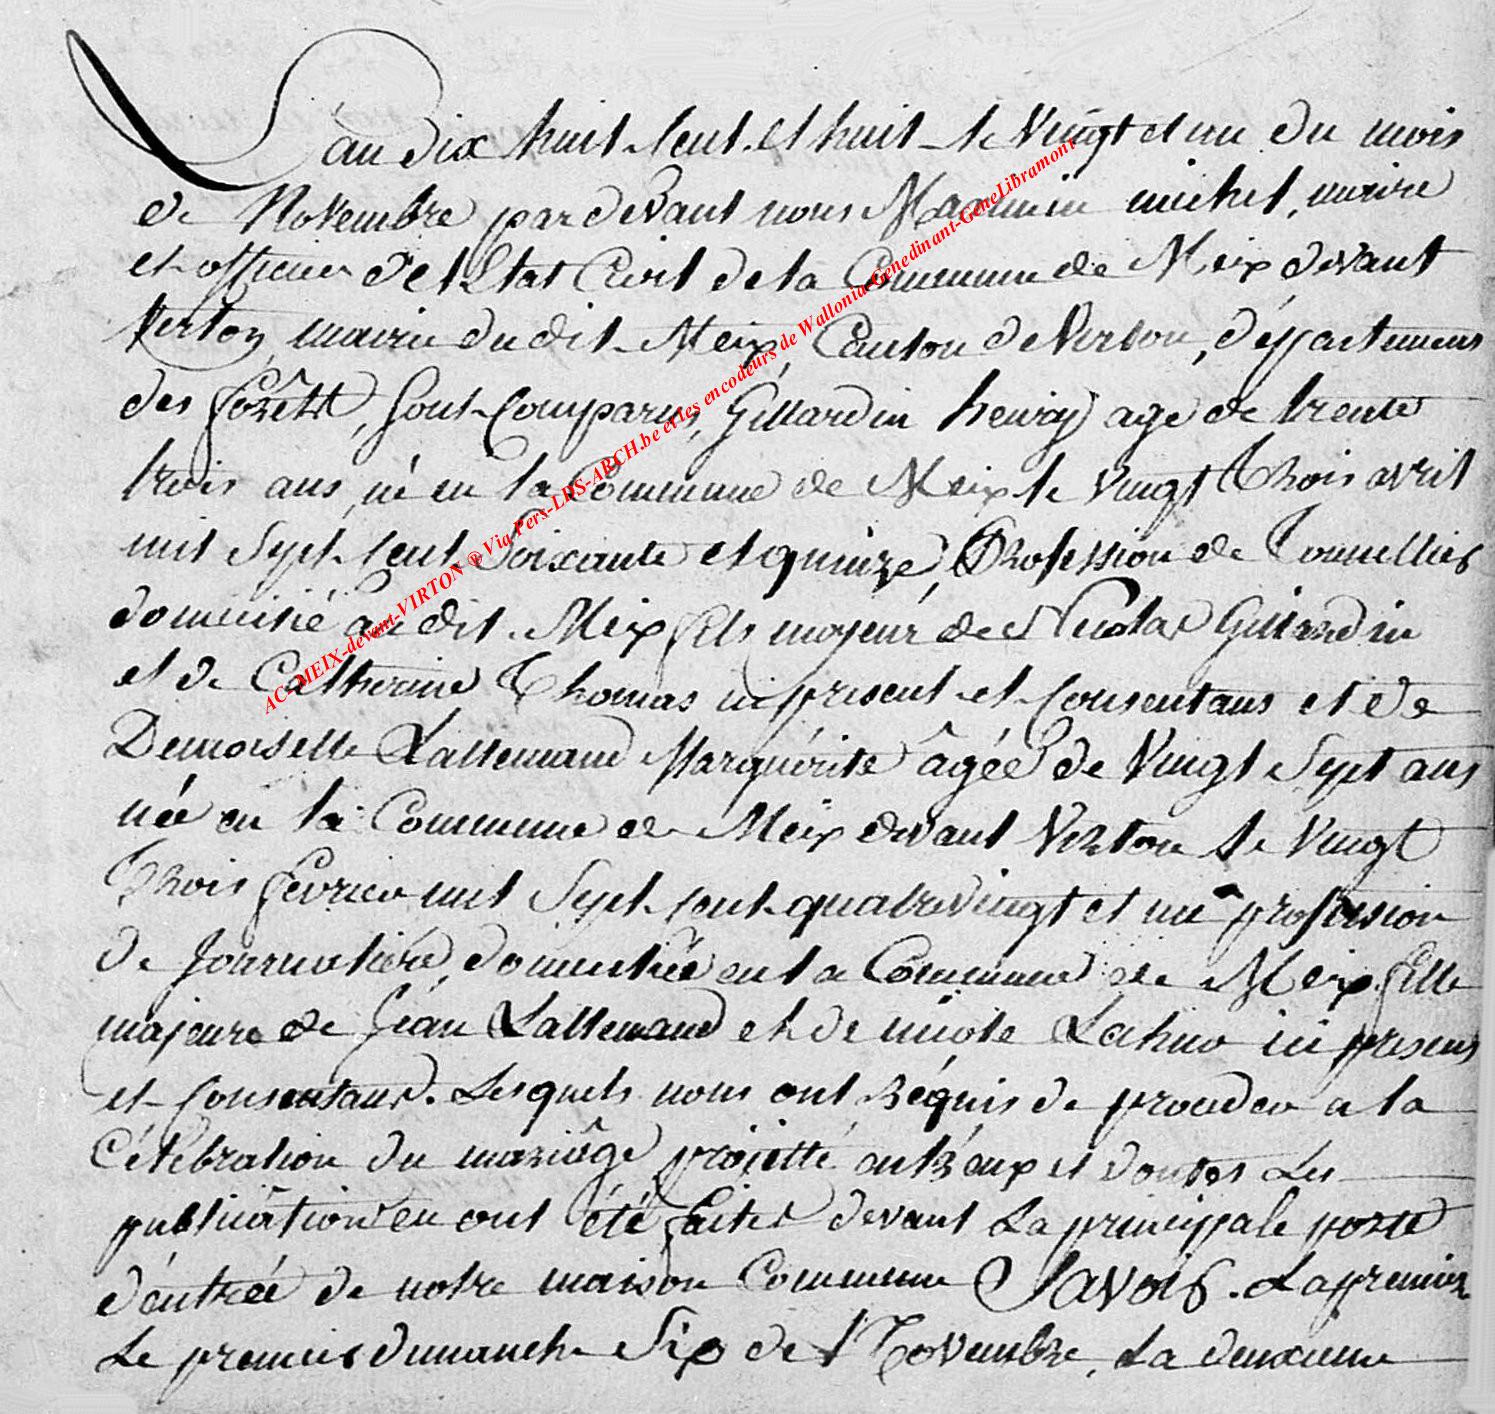 L'an dix huit Cent et huit le Vingt et un du mois
de Novembre pardevant nous Maximin michel, maire
et officier de l'Etat Civil de la Commune de Meix devant
Virton mairie du dit Meix, Canton de Virton, département
des forêts, Sont Comparus, Gillardin henry agé de trente
trois ans, né en la Commune de Meix le Vingt Trois avril
mil Sept Cent Soixante et quinze, Profession de
domicilié au dit Meix fils majeur de Nicolas Gillardin
et de Catherine Thomas ici présent et Consentans et de
Demoiselle Lallemand Marguérite âgée de Vingt Sept ans
née en la Commune de Meix devant Virton le Vingt
Trois fevrier mil Sept Cent quatre Vingt et un profession
de Journalière, domiciliée en la Commune de Meix fille
majeure de Jean Lallemand et de nicole Lahno ici présens
et Consentans. Lesquels nous ont Réquis de proceder a la
Célébration du mariâge projetté entr'eux et dont les
publications en ont été faites devant La principale porte
d'entrée de notre maison Commune Savoir. La premiere
Le premier dimanche Six de Novembre, La deuxieme
AC-MEIX-devant-VIRTON ® Via Pers-LDS-ARCH.be et les encodeurs de Wallonia-Genedinant-GeneLibramont